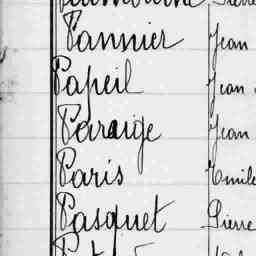 Pannier Jean
Papeil Jean
Paraige Jean
Paris Emile
Pasquet Pierre